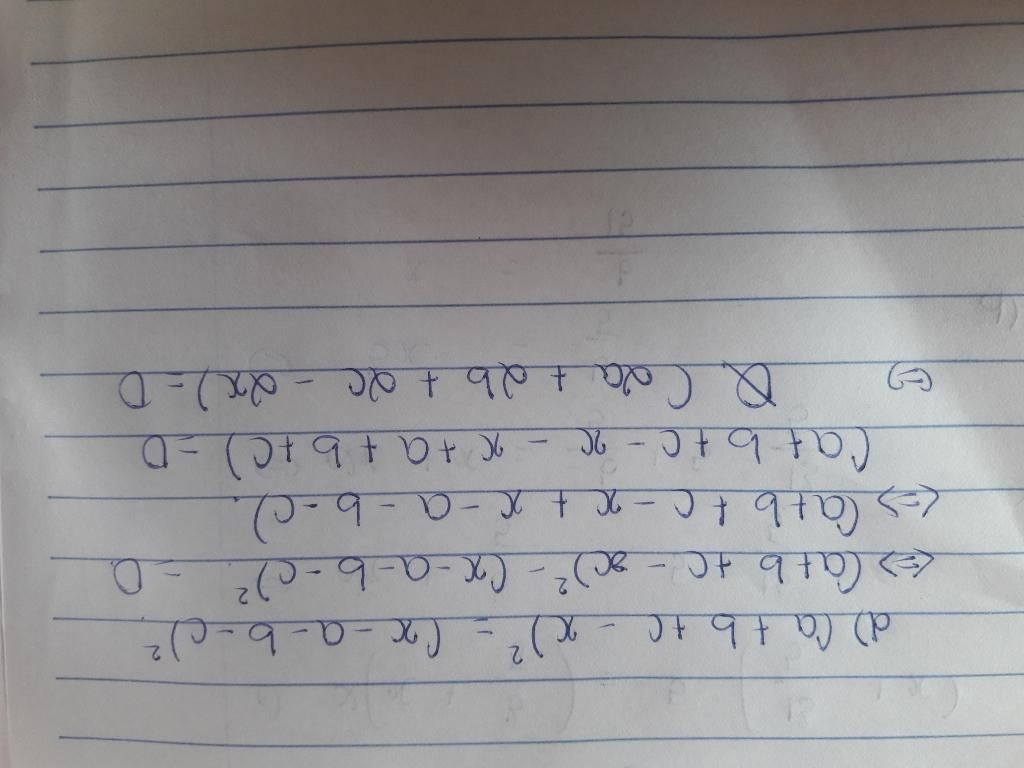 a) (a + b + c - x)² = (x - a - b - c)²
⇔ (a + b + c - x)² - (x - a - b - c)² = 0
⇔ (a + b + c - x + x - a - b - c).
(a + b + c - x - x + a + b + c) = 0
⇔ (2a + 2b + 2c - 2x) = 0